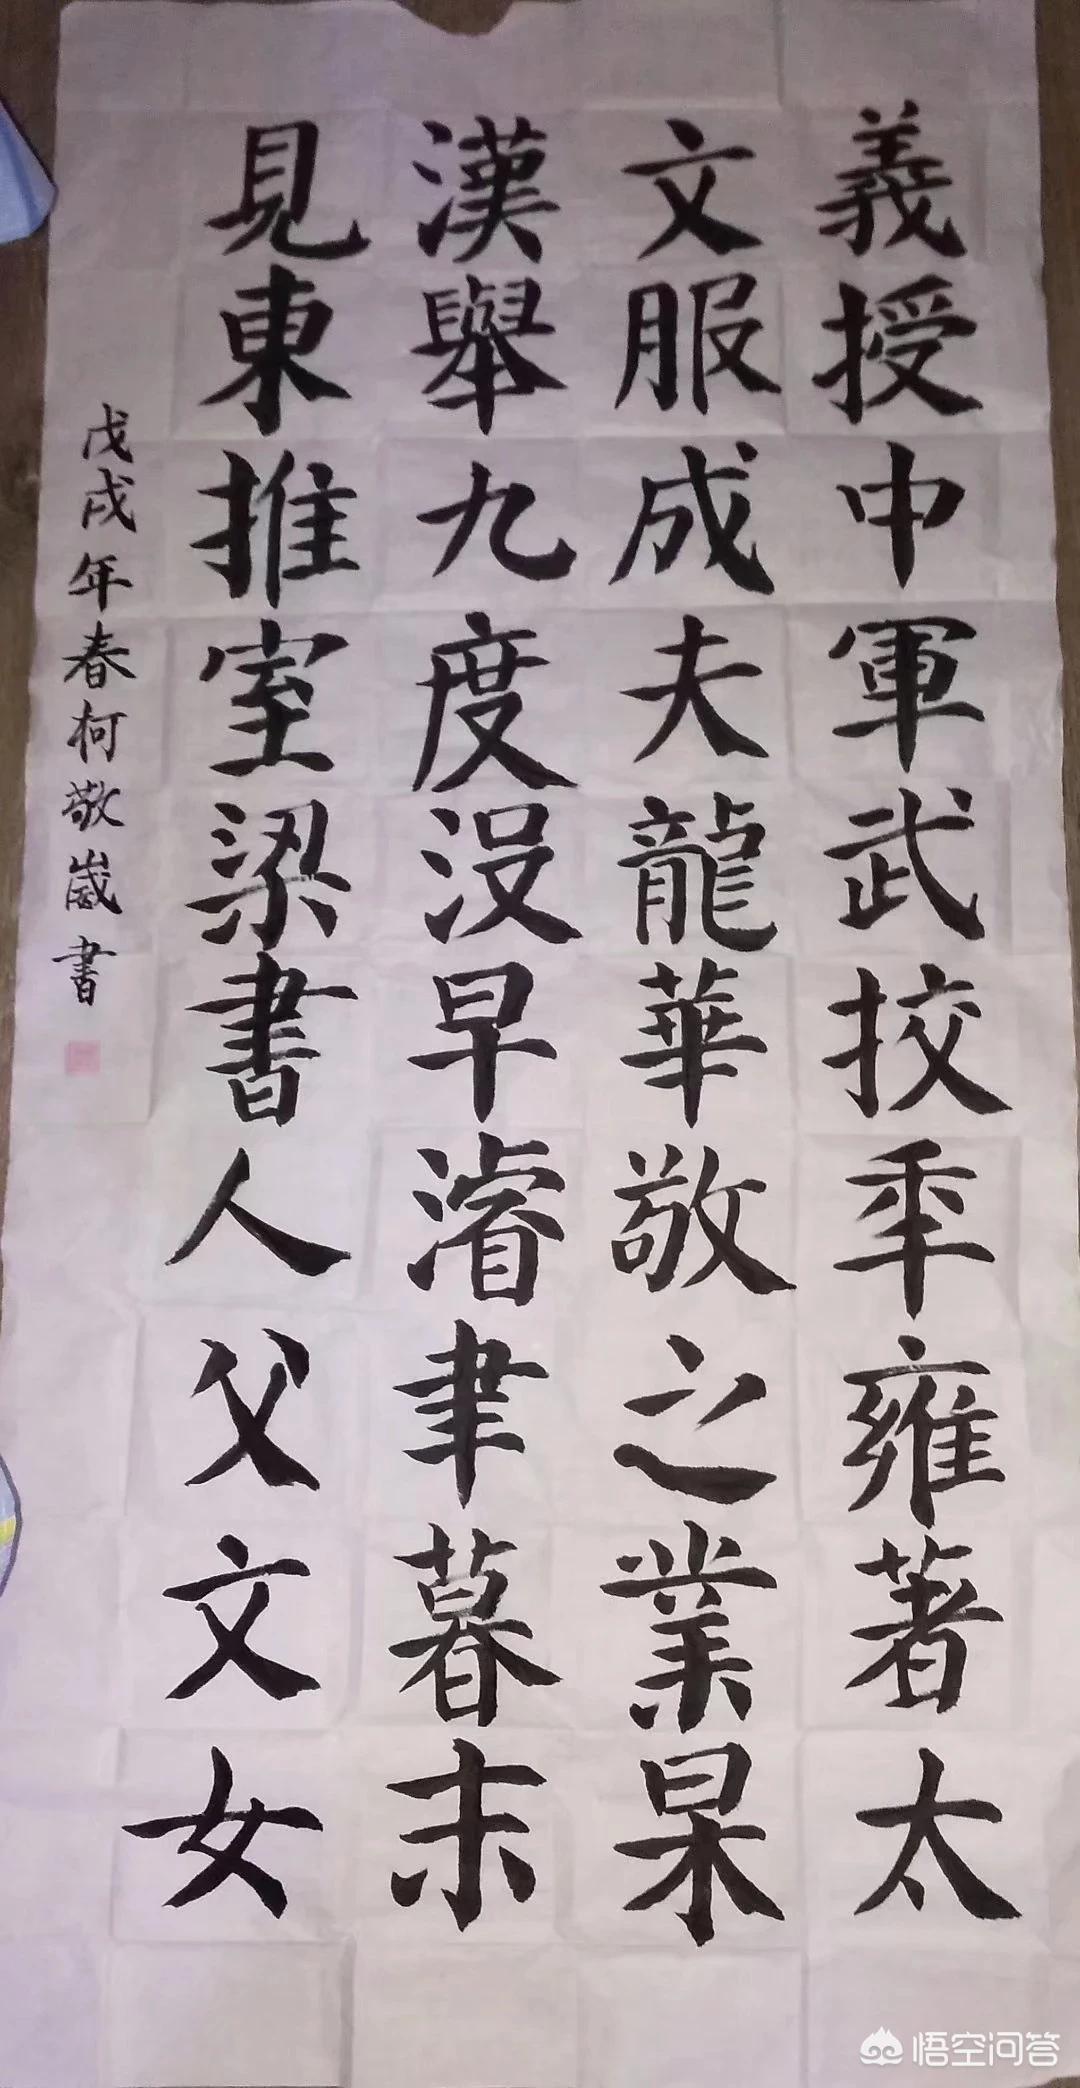 義授中軍武挍秊雍著太
文服成夫龍華敬之業杲
漢舉九度没早濬聿暮末
見東推室梁書人父文女
戊戌年春柯敬崴書
悟空问答